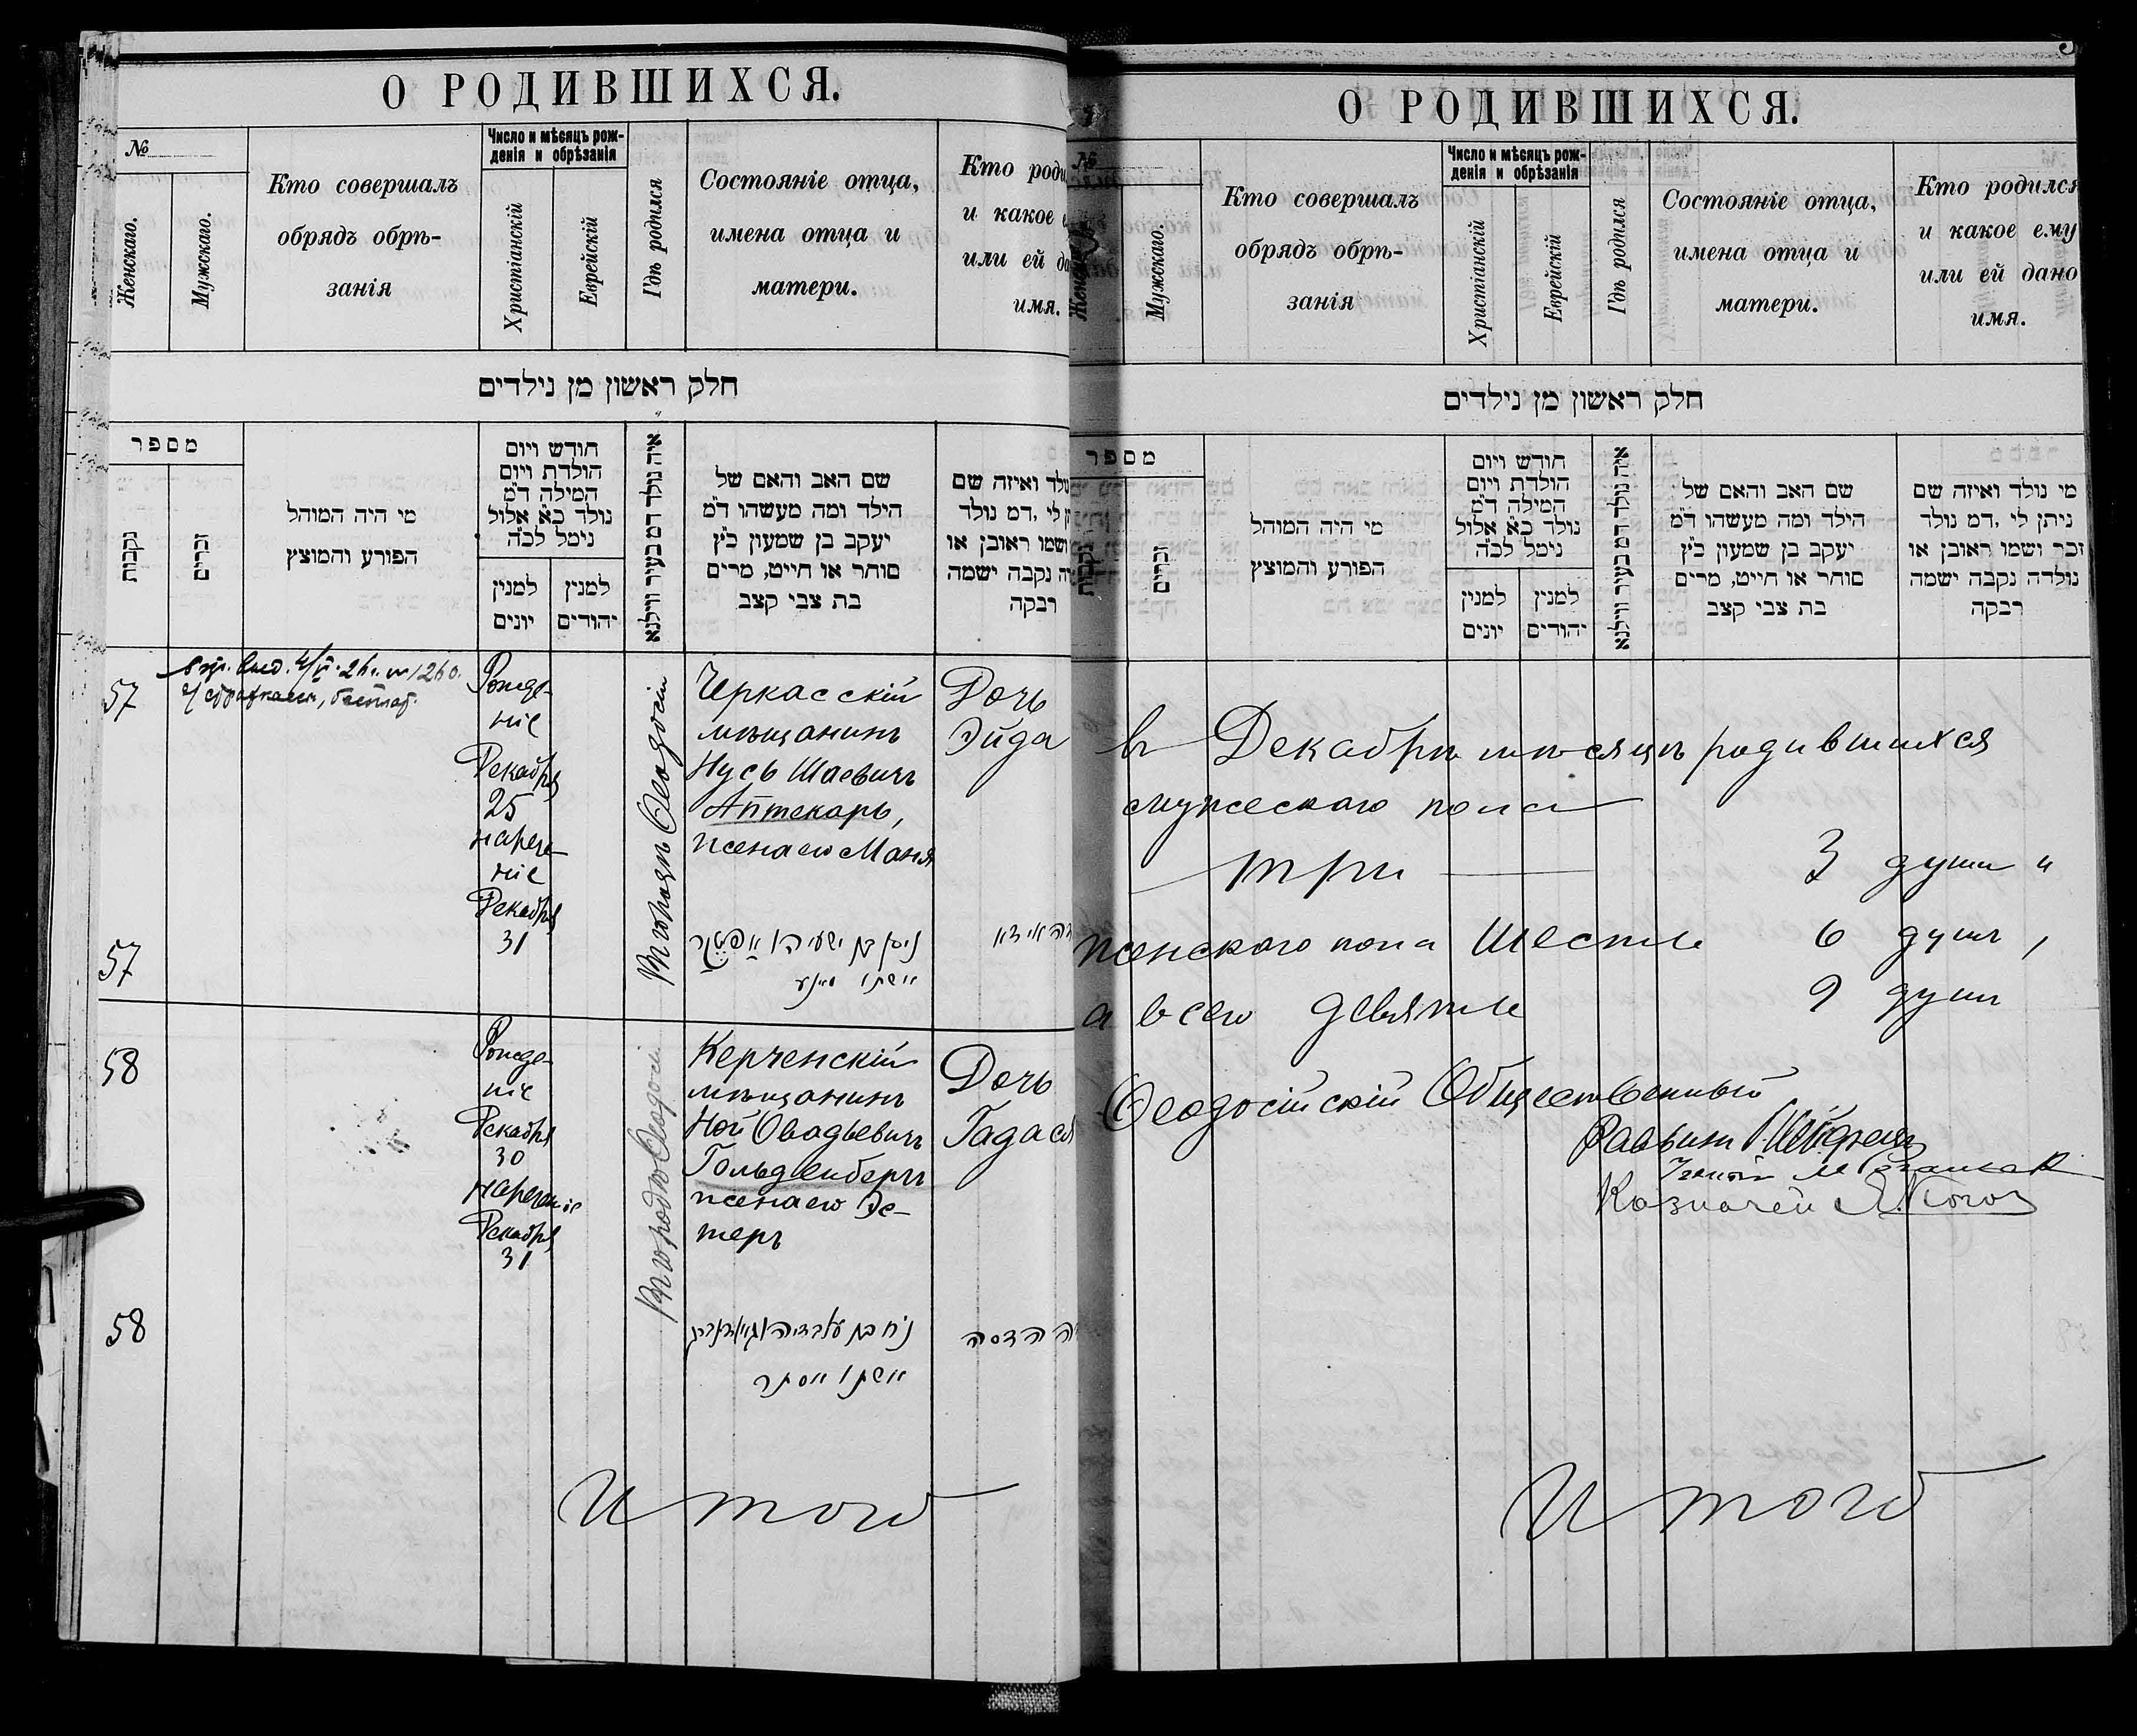 О РОДИВШИХСЯ.
№
Женскаго.
Мужскаго.
Кто совершалъ
обрядъ обрѣ-
занія
Число и мѣсяцъ рож-
денія и обрѣзанія
Христіанскій
Еврейскій
Гдѣ родился
Состояніе отца,
имена отца и
матери.
Кто роди
и какое
или ей да
имя.
חלק ראשון מן נילדים
מספר
נקבות
זכרים
מי היה המוהל
הפורע והמוצץ
חודש ויום
הולדת ויום
המילה ד״מ
נולד כ״א אלול
נימל לכ״ה
למנין
יונים
למנין
יהודים
איה נולד דמ בעיר ווילנא
שם האב והאם של
הילד ומה מעשהו ד״מ
יעקב בן שמעון כ״ץ
סוחר או חייט, מרים
בת צבי קצב
נולד ואיזה שם
לי, דמ נולד
ושמו ראובן או
נקבה ישמה
רבקה
57
Рожде-
ніе
Декабря
25
нарече-
ніе
Декабря
31
Въ городѣ Ѳеодосіи
Черкасскій
мѣщанинъ
Нусь Шаевичъ
Аптекарь,
жена его Маня
Дочь
Эйда
ניסן בן ישעיהו אפטקר
אשתו מאניע
אידא
57
58
Рожде-
ніе
Декабря
30
Наречение
Декабря
31
Въ городѣ Ѳеодосіи
Керченскій
мѣщанинъ
Ной Овадьевичъ
Гольденбергъ
жена его Эс-
теръ
Дочь
Гадася
58
נח בן עובדיהו
אשתו אסתר
הדסה
Итого
О РОДИВШИХСЯ.
№
Женскаго
Мужскаго.
Кто совершалъ
обрядъ обрѣ-
занія
Число и мѣсяцъ рож-
денія и обрѣзанія
Христіанскій
Еврейскій
Гдѣ родился
Состояніе отца,
имена отца и
матери.
Кто родился
и какое ему
или ей дано
имя.
חלק ראשון מן נילדים
מספר
נקבות
זכרים
מי היה המוהל
הפורע והמוצץ
חודש ויום
הולדת ויום
המילה ד״מ
נולד כ״א אלול
נימל לכ״ה
למנין
יונים
למנין
יהודים
איה נולד דמ בעיר ווילנא
שם האב והאם של
הילד ומה מעשהו ד״מ
יעקב בן שמעון כ״ץ
סוחר או חייט, מרים
בת צבי קצב
מי נולד ואיזה שם
ניתן לי, דמ נולד
זכר ושמו ראובן או
נולדה נקבה ישמה
רבקה
въ Декабрѣ мѣсяцѣ родившихся
мужескаго пола
три 3 души "
женскаго пола шесть 6 душъ,
а всего девять 9 душъ
Ѳеодосійскій Общественный
Раввинъ
Казначей
Итого